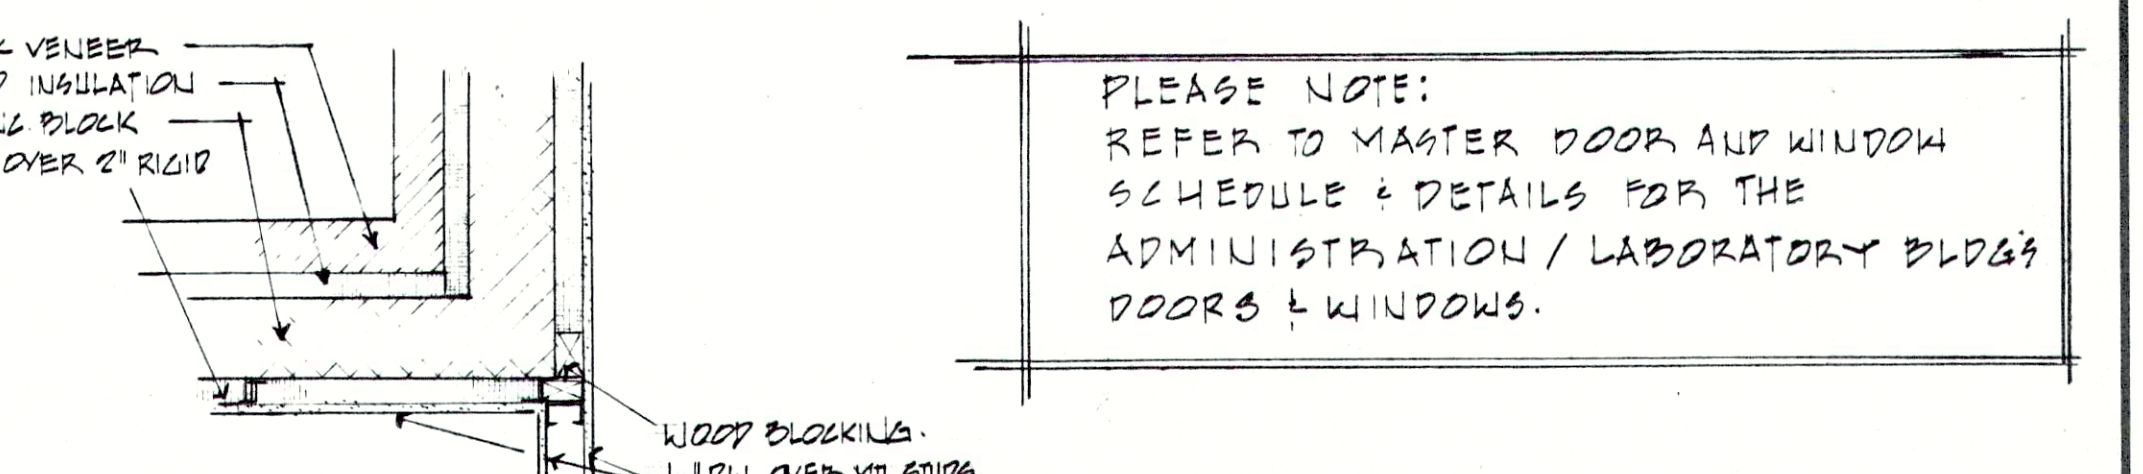 VENEER
INSULATION
BLOCK
OVER 2" RIGID
PLEASE NOTE:
REFER TO MASTER DOOR AND WINDOW
SCHEDULE & DETAILS FOR THE
ADMINISTRATION / LABORATORY BLDG'S
DOORS & WINDOWS.
WOOD BLOCKING.
OVER